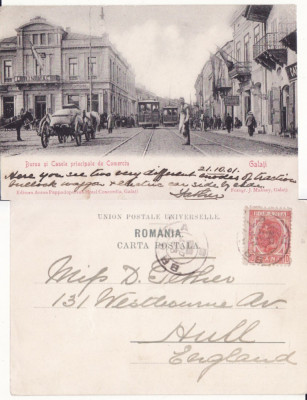 Bursa si Casele principale de Comerciu
Galați
21.10.01.
Here you see two very different modes of traction
bullock waggon & electric car side by side.
UNION POSTALE UNIVERSELLE.
ROMANIA
CARTA POSTALA.
Miss D. Tether
131 Westbourne Av.
Hull
England